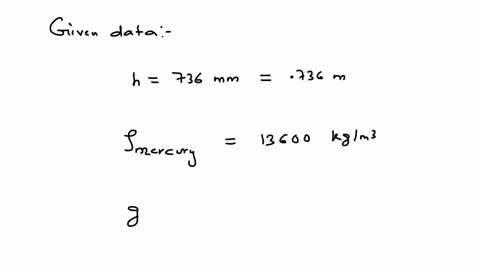 Given data:-
h = 736 mm = .736 m
ρmercury = 13600 kg/m3
g